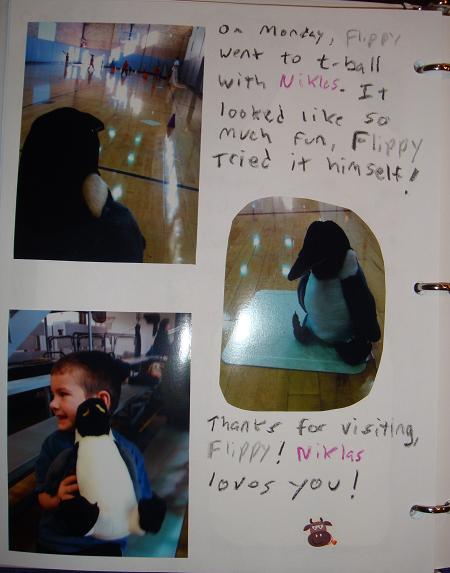 On Monday, Flippy
went to t-ball
with Niklas. It
looked like so
much fun, Flippy
Tried it himself!
Thanks for visiting,
Flippy! Niklas
loves you!